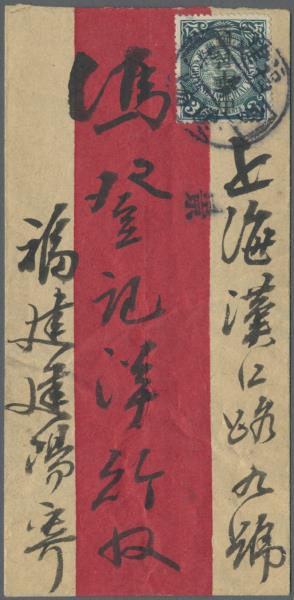 上海漢口路九號
馮登記洋行收
福建建陽寄